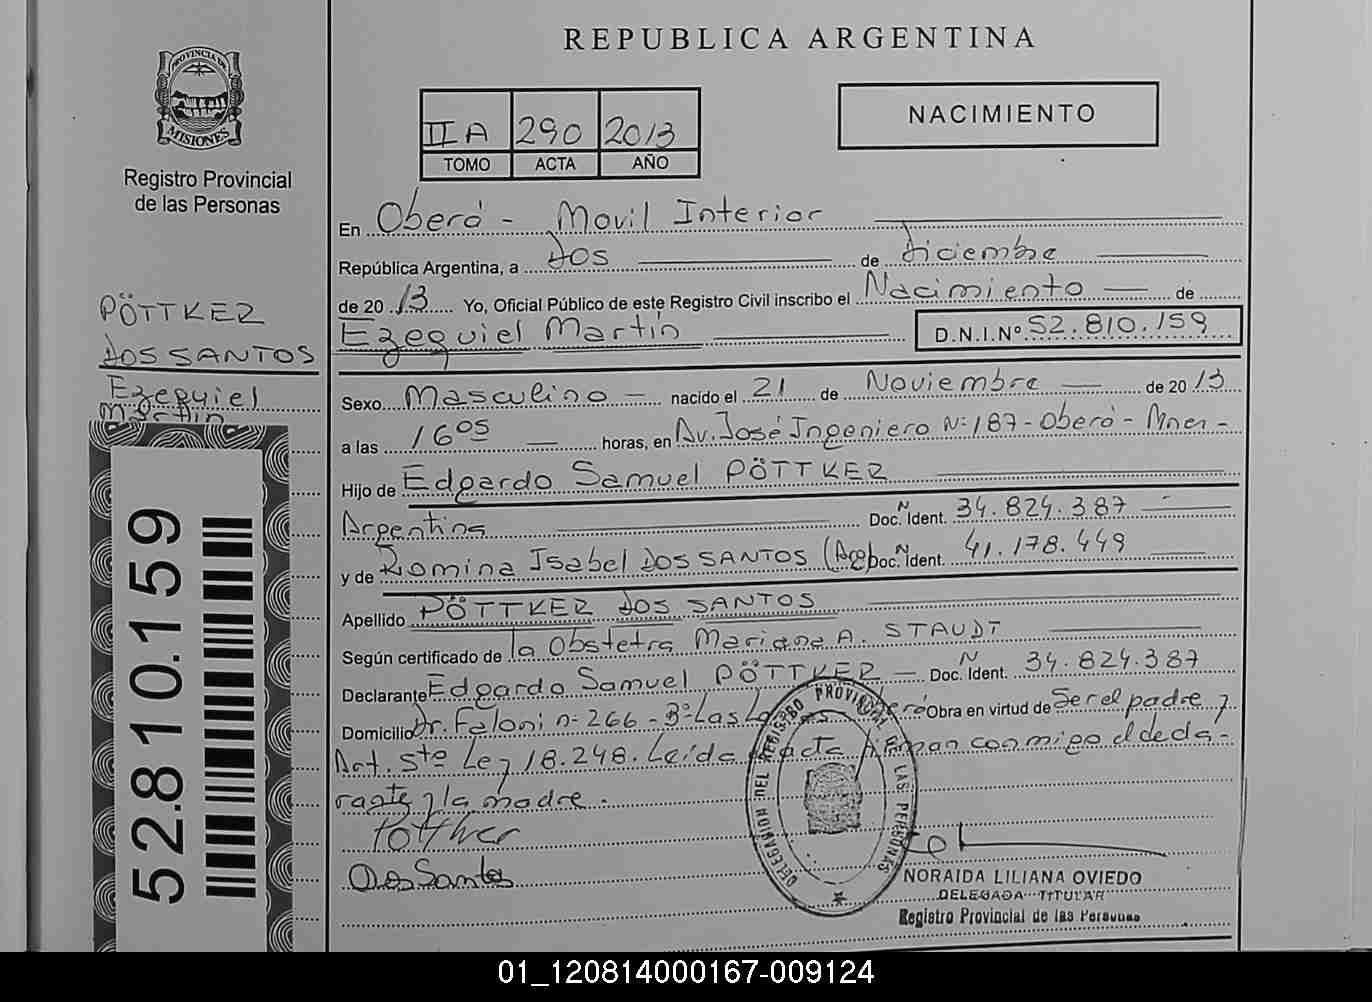 PROVINCIA DE
MISIONES
Registro Provincial
de las Personas
PÖTTKER
DOS SANTOS
Ezequiel
Martín
52.810.159
REPUBLICA ARGENTINA
II A 290 2013
TOMO ACTA AÑO
NACIMIENTO
En Oberá - Movil Interior
República Argentina, a dos de diciembre
de 20 13 Yo, Oficial Público de este Registro Civil inscribo el Nacimiento de
Ezequiel Martín D.N.I.Nº 52.810.159
Sexo Masculino nacido el 21 de Noviembre de 20 13
a las 16 05 horas, en Av. José Ingeniero Nº 187 - Oberá - Mnes -
Hijo de Edgardo Samuel PÖTTKER
Argentino Doc. N Ident. 34.824.387
y de Romina Isabel DOS SANTOS Doc. N Ident. 41.178.449
Apellido PÖTTKER DOS SANTOS
Según certificado de la Obstetra Mariana A. STAUDT
Declarante Edgardo Samuel PÖTTKER - Doc. N Ident. 34.824.387
Domicilio Dr. Faloni nº 266 - Bº Las Obra en virtud de Ser el padre y
Art. 5to Ley 18.248. Leída acta firman conmigo el decla-
rante y la madre.
Pottker
Dos Santos
DELEGACION DEL REGISTRO PROVINCIAL DE LAS PERSONAS
NORAIDA LILIANA OVIEDO
DELEGADA TITULAR
Registro Provincial de las Personas
01_120814000167-009124